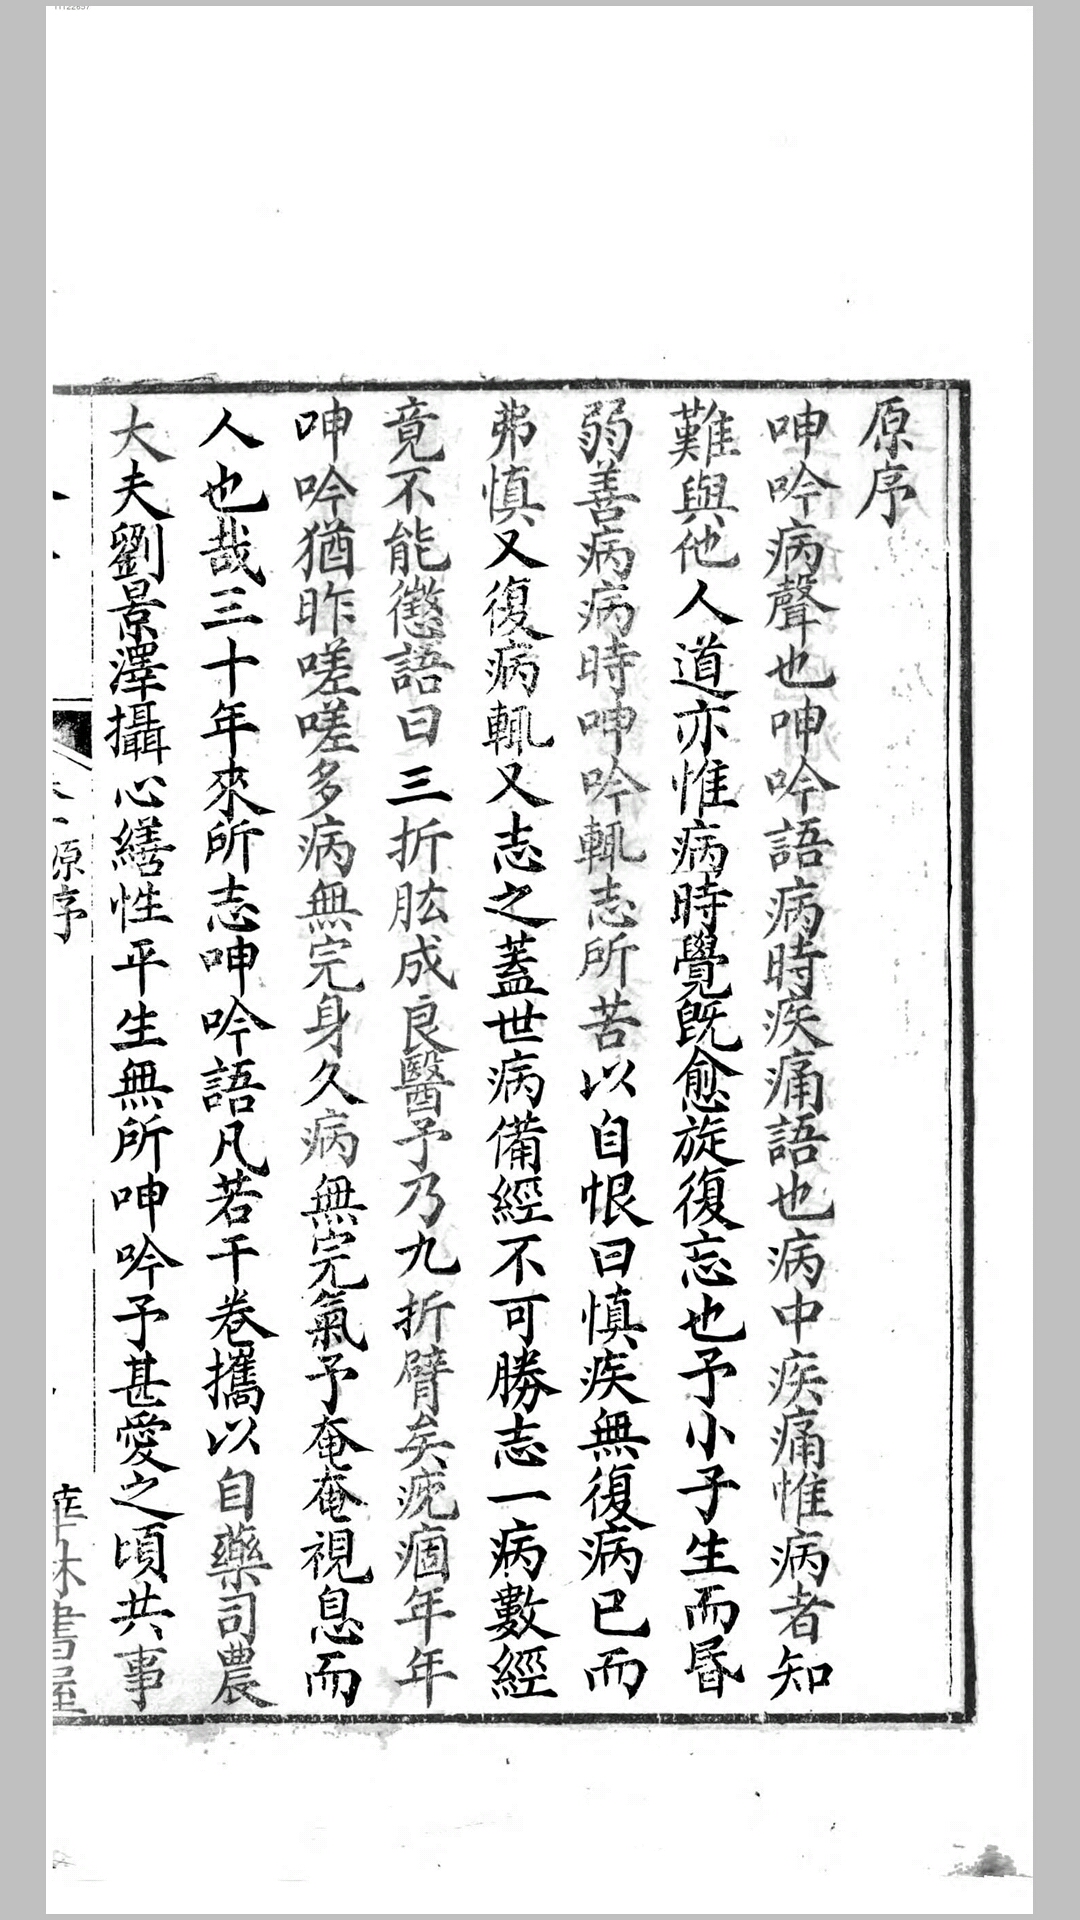 原序
呻吟病聲也呻吟語病時疾痛語也病中疾痛惟病者知
難與他人道亦惟病時覺既愈旋復忘也予小子生而昬
弱善病病時呻吟輒志所苦以自恨曰慎疾無復病已而
弗慎又復病輒又志之蓋世病備經不可勝志一病數經
竟不能懲語曰三折肱成良醫予乃九折臂矣疣痼年年
呻吟猶昨嗟嗟多病無完身久病無完氣予奄奄視息而
人也哉三十年來所志呻吟語凡若干卷攜以自藥司農
大夫劉景澤攝心繕性平生無所呻吟予甚愛之頃共事
原序
書屋